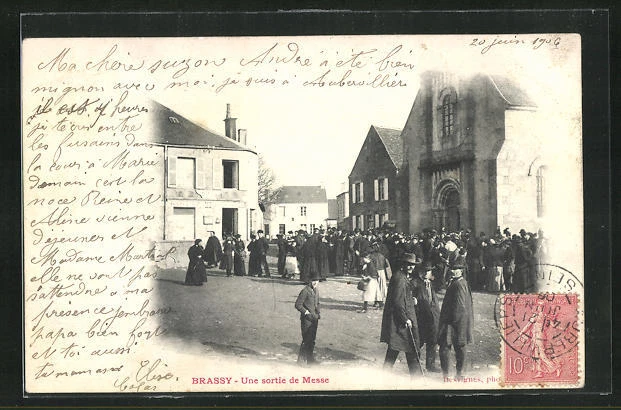 20 juin 1906
Ma chère suzon André a été bien
mignon avec moi, je suis à Aubervillier
il est 7 heures
je t'écris entre
les fusains dans
la cour à Marie
demain c'est la
noce Reine et
Aline vienne
déjeuner et
Madame
elle ne vont pas
s'attendre a ma
présence Jembrasse
papa bien fort
et toi aussi
ta maman Elise
BRASSY - Une sortie de Messe
Desvignes, pho
10c